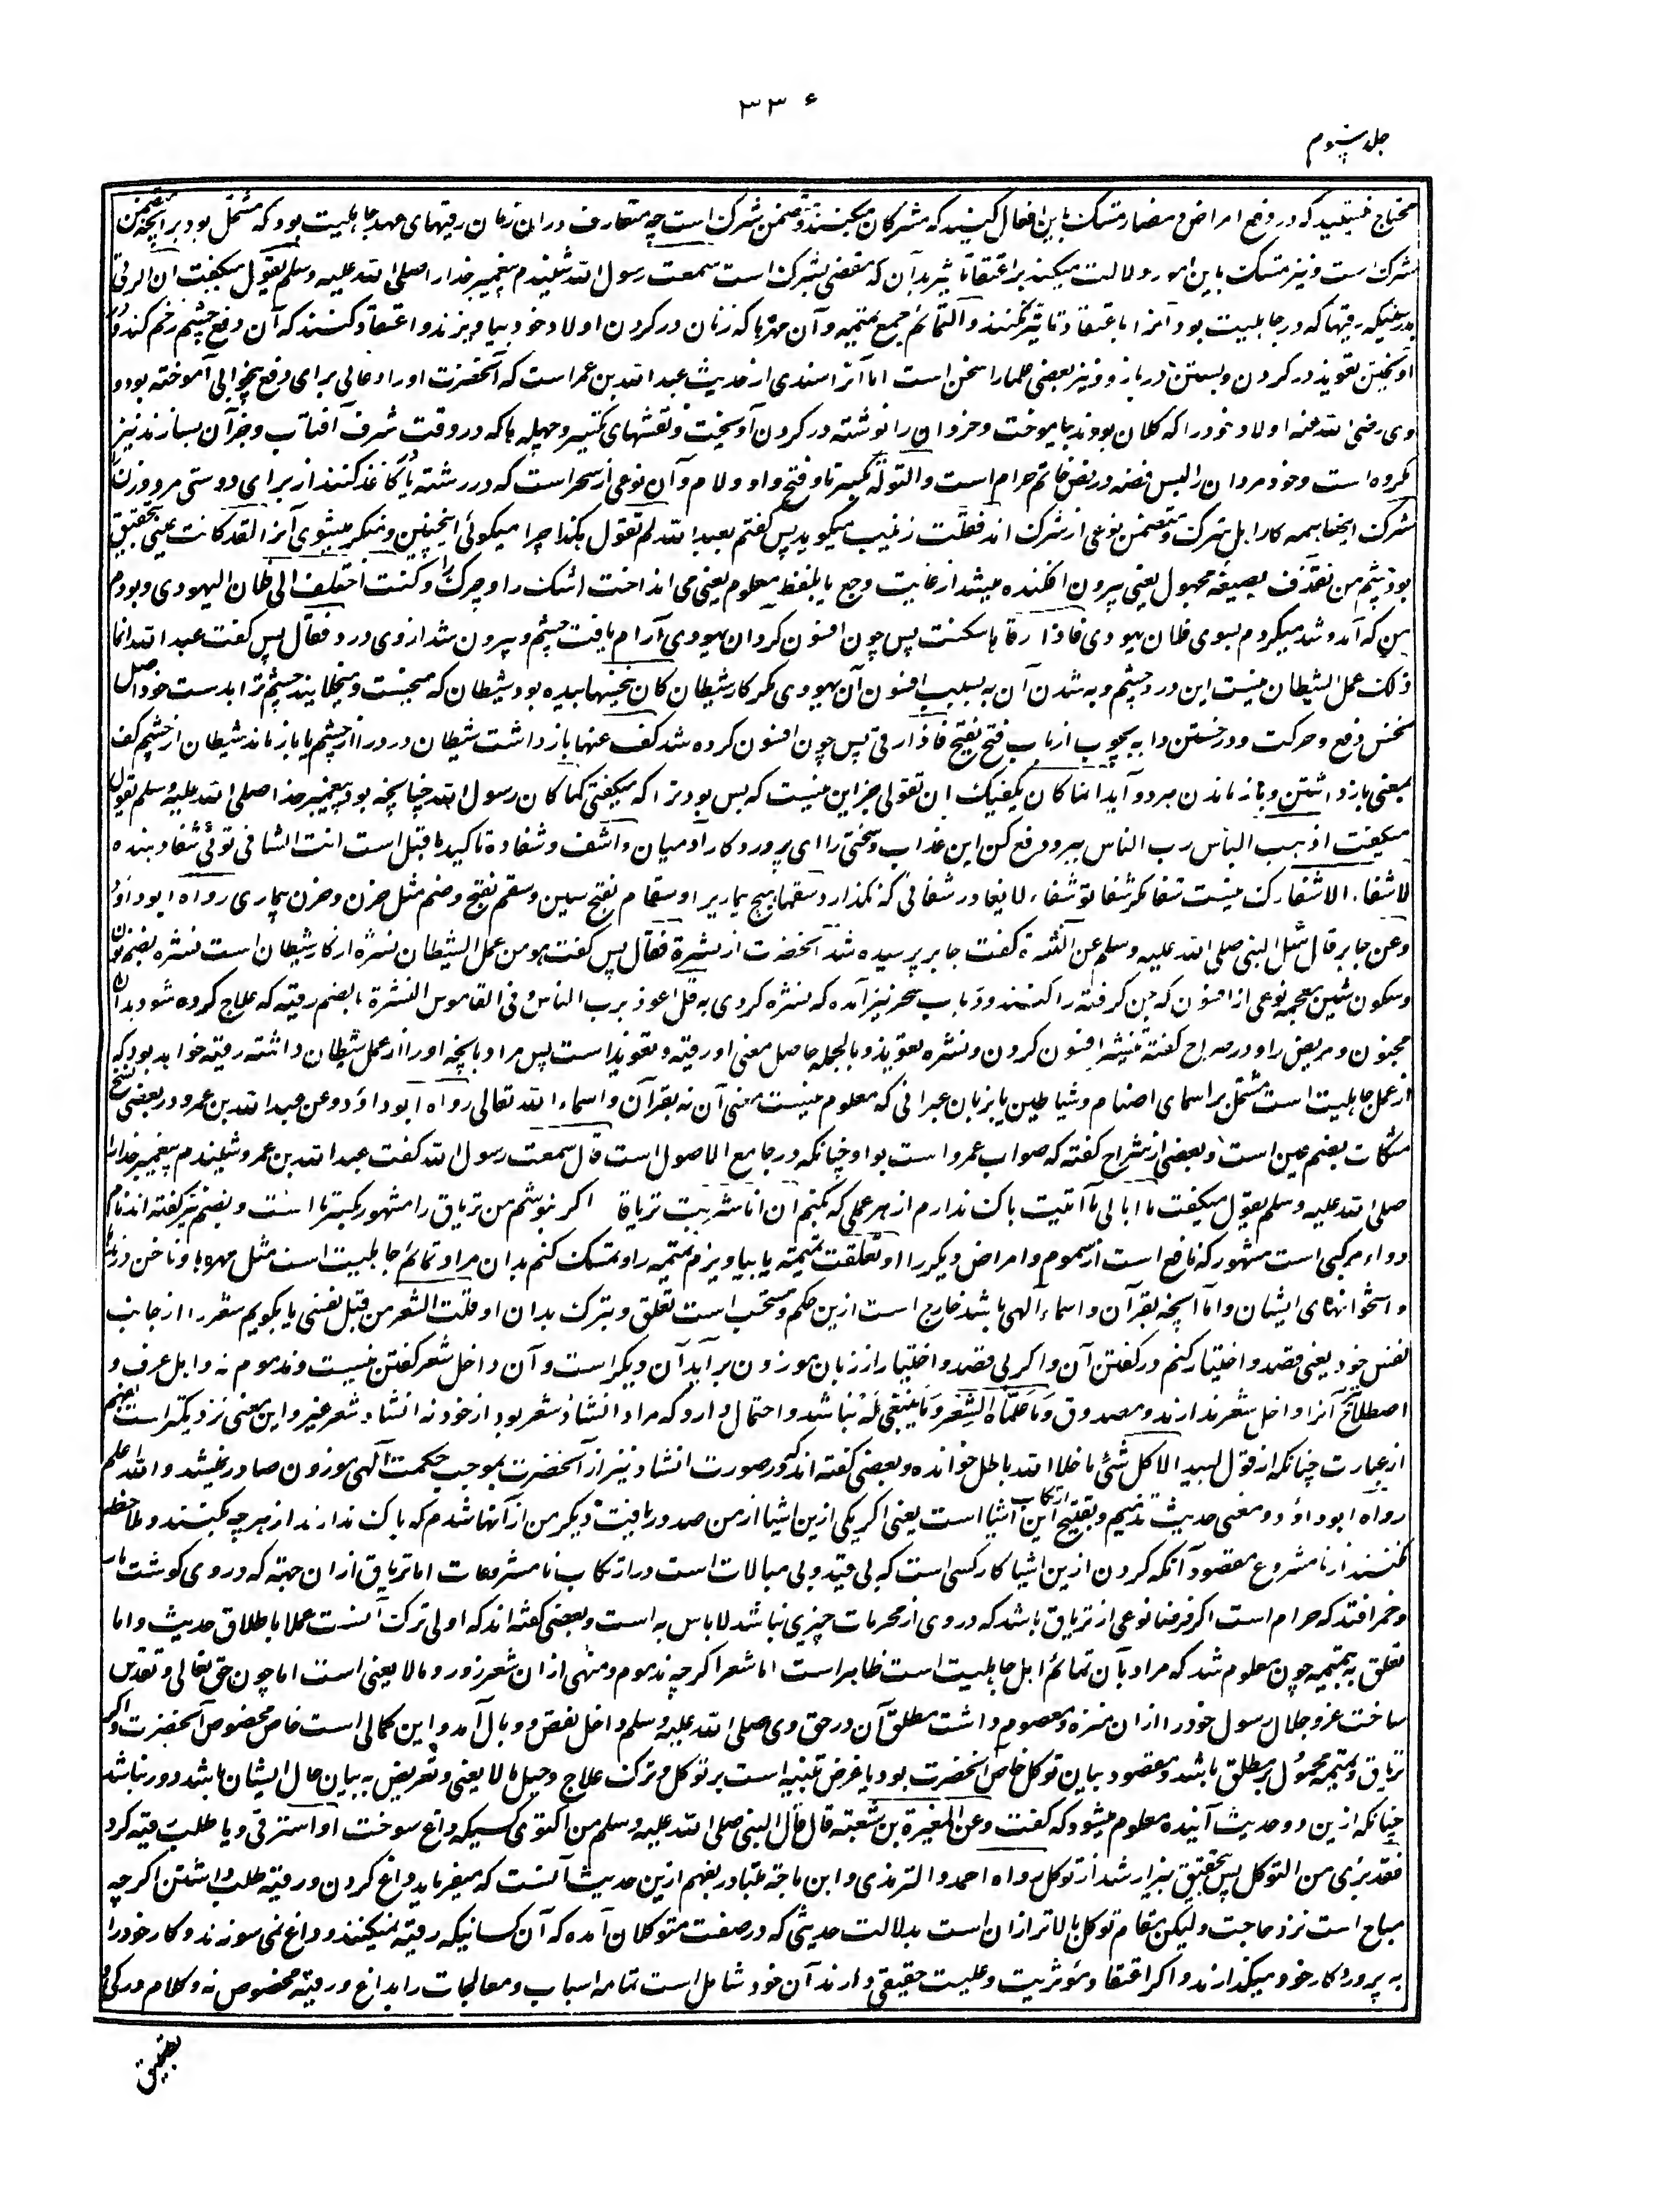 ٣٣٠
جلد سوم
محتاج نیستید که در دفع امراض و مضار متمسک باین افعال کنید که مشرکان میکنند و متضمن شرک است چه متعارف در ان زمان رقیهای عهد جاهلیت بود که مشتمل بود بر آنچه متضمن
شرک است و نیز متمسک باین امور دلالت میکند بر اعتقاد تاثیر بدان که مفضی بشرک است سمعت رسول الله شنیدم پیغمبر خدا را صلی الله علیه وسلم یقول میگفت ان الرقی
بدرستیکه رقیها که در جاهلیت بود آنرا با عتقاد تاثیر کنند و التمائم جمع تمیمه و آن مهرها که زنان در گردن اولاد خود بیاویزند و اعتقاد کنند که آن دفع چشم زخم کند و در
آویختن تعویذ در گردن و بستن در بازو نیز بعضی علما را سخن است اما آنرا سندی از حدیث عبد الله بن عمر است که آنحضرت او را دعائی برای دفع بیخوابی آموخته بود و
وی رضی الله عنه اولاد خود را که کلان بودند بیاموخت و خردان را نوشته در گردن آویخت و نقشهای تکسیر و حیله ها که در وقت شرف آفتاب و جز آن بسازند نیز
مکروه است و خود مردان را لبس فضه در نقض خاتم حرام است و التولة بکسر تا و فتح واو و لام و آن نوعی از سحر است که در رشته یا کاغذ کنند از برای دوستی مرد و زن
شرک اینها همه کار اهل شرک و متضمن نوعی از شرک اند فقلت زینب میگوید پس گفتم بعبد الله لم تقول هکذا چرا میگوئی اینچنین و منکر میشوی آنرا لقد کانت عینی بتحقیق
بود چشم من تقذف بصیغه مجهول یعنی بیرون افکنده میشد از غایت وجع یا بلفظ معلوم یعنی می انداخت اشک را و چرک را و کنت اختلف الی فلان الیهودی و بودم
من که آمد و شد میکردم بسوی فلان یهودی فاذا رقاها سکنت پس چون افسون کرد ان یهودی آرام یافت چشم و بیرون شد از وی درد فقال پس گفت عبد الله انما
ذلک عمل الشیطان نیست این درد چشم و به شدن آن به سبب افسون آن یهودی مگر کار شیطان کان ینخسها بیده بود شیطان که میخست و میخلایند چشم ترا بدست خود اصل
نخس دفع و حرکت و درخستن دابه بچوب از باب فتح یفتح فاذا رقی پس چون افسون کرده شد کف عنها باز داشت شیطان درد را از چشم یا باز ماند شیطان از چشم کف
بمعنی باز داشتن و باز ماندن هر دو آید انما کان یکفیک ان تقولی جز این نیست که بس بود ترا که میگفتی کما کان رسول الله چنانچه بود پیغمبر خدا صلی الله علیه وسلم یقول
میگفت اذهب الباس رب الناس ببر و دفع کن این عذاب و سختی را ای پروردگار آدمیان و اشف و شفاده تاکید ما قبل است انت الشافی توئی شفا دهنده
لا شفاء الا شفاءک نیست شفا مگر شفا تو شفاء لا یغادر شفائی که نگذارد سقما هیچ بیماری را و سقام بفتح سین و سقم بفتح و ضم مثل حزن و حزن بیماری رواه ابو داؤد
وعن جابر قال سئل النبی صلی الله علیه وسلم عن النشرة گفت جابر پرسیده شد آنحضرت از نشرة فقال پس گفت هو من عمل الشیطان نشره از کار شیطان است نشره بضم نون
و سکون شین معجمه نوعی از افسون که جن گرفته را کنند و در باب سحر نیز آمده که نشره کردی به قل اعوذ برب الناس و فی القاموس النشرة بالضم رقیه که علاج کرده شود بدان
مجنون و مریض را و در صراح گفته تنشیه افسون کردن و نشره تعویذ و بالجمله حاصل معنی او رقیه و تعویذ است پس مراد بآنچه او را از عمل شیطان داشته رقیه خواهد بود که
از عمل جاهلیت است مشتمل بر اسمای اصنام و شیاطین یا بزبان عبرانی که معلوم نیست معنی آن نه بقرآن و اسماء الله تعالی رواه ابو داؤد وعن عبد الله بن عمر و در بعضی نسخ
مشکات بضم عین است و بعضی از شراح گفته که صواب عمرو است بواو چنانکه در جامع الاصول است قال سمعت رسول الله گفت عبد الله بن عمرو شنیدم پیغمبر خدا را
صلی الله علیه وسلم یقول میگفت ما ابالی ما اتیت باک ندارم از هر عملی که بکنم ان انا شربت تریاقا اگر بنوشم من تریاق را مشهور بکسر تا است و بضم نیز گفته اند نام
دواء مرکبی است مشهور که نافع است از سموم و امراض دیگر را او تعلقت تمیمة یا بیاویزم تمیمه را و متمسک کنم بدان مراد تمائم جاهلیت است مثل مهره ها و ناخن درندها
و استخوانهای ایشان و اما آنچه بقرآن و اسماء الهی باشد خارج است ازین حکم و مستحب است تعلق و تبرک بدان او قلت الشعر من قبل نفسی یا بگویم شعر را از جانب
نفس خود یعنی قصد و اختیار کنم در گفتن آن و اگر بی قصد و اختیار از زبان موزون بر آید آن دیگر است و آن داخل شعر گفتن نیست و مذموم نه و اهل عرف و
اصطلاح آنرا داخل شعر ندارند و مصدوق وَمَا عَلَّمْنَاهُ الشِّعْرَ وَمَا يَنْبَغِي لَهُ نباشد و احتمال دارد که مراد انشاد شعر بود از خود نه انشاد شعر غیر و این معنی نزدیکتر است بفهم
از عبارت چنانکه از قول لبید الا کل شئ ما خلا الله باطل خوانده و بعضی گفته اند که در صورت انشاد نیز از آنحضرت بموجب حکمت الهی موزون صادر نمیشد و الله اعلم
رواه ابو داؤد و معنی حدیث تذمیم و تقبیح ارتکاب این اشیا است یعنی اگر یکی ازین اشیا از من صدور یافت دیگر من از آنها شدم که باک ندارند از هر چه بکنند و ملاحظه
نکنند از نامشروع مقصود آنکه کردن ازین اشیا کار کسی است که بی قید و بی مبالات است در ارتکاب نامشروعات اما تریاق از ان جهته که در وی گوشت مار
و خمر افتد که حرام است اگر فرضا نوعی از تریاق باشد که در وی از محرمات چیزی نباشد لا باس به است و بعضی گفته اند که اولی ترک آنست عملا باطلاق حدیث و اما
تعلق به تمیمه چون معلوم شد که مراد بآن تمائم اهل جاهلیت است ظاهر است اما شعر اگر چه مذموم و منهی از ان شعر زور و مالایعنی است اما چون حق تعالی و تقدس
ساخت عز و جلال رسول خود را از ان منزه و معصوم داشت مطلق آن در حق وی صلی الله علیه وسلم داخل نقص و وبال آمد و این کمالی است خاص مخصوص آنحضرت و اگر
تریاق و تمیمه محمول بر مطلق باشد و مقصود بیان توکل خاص آنحضرت بود یا غرض تنبیه است بر توکل و ترک علاج و حیل مالایعنی و تعریض به بیان حال ایشان باشد دور نباشد
چنانکه ازین دو حدیث آینده معلوم میشود که گفت وعن المغیرة بن شعبة قال قال النبی صلی الله علیه وسلم من اکتوی کسیکه داغ سوخت او استرقی و یا طلب رقیه کرد
فقد برئ من التوکل پس بتحقیق بیزار شد از توکل رواه احمد و الترمذی و ابن ماجة متبادر بفهم ازین حدیث آنست که میفرماید داغ کردن و رقیه طلب داشتن اگر چه
مباح است نزد حاجت ولیکن مقام توکل بالاتر از ان است بدلالت حدیثی که در صفت متوکلان آمده که آن کسانیکه رقیه نمیکنند و داغ نمی سوزند و کار خود را
به پروردگار خود میگذارند و اگر اعتقاد مؤثریت و علیت حقیقی دارند آن خود شامل است تمامه اسباب و معالجات را بداغ و رقیه مخصوص نه و کلام در کی و
بتحقیق